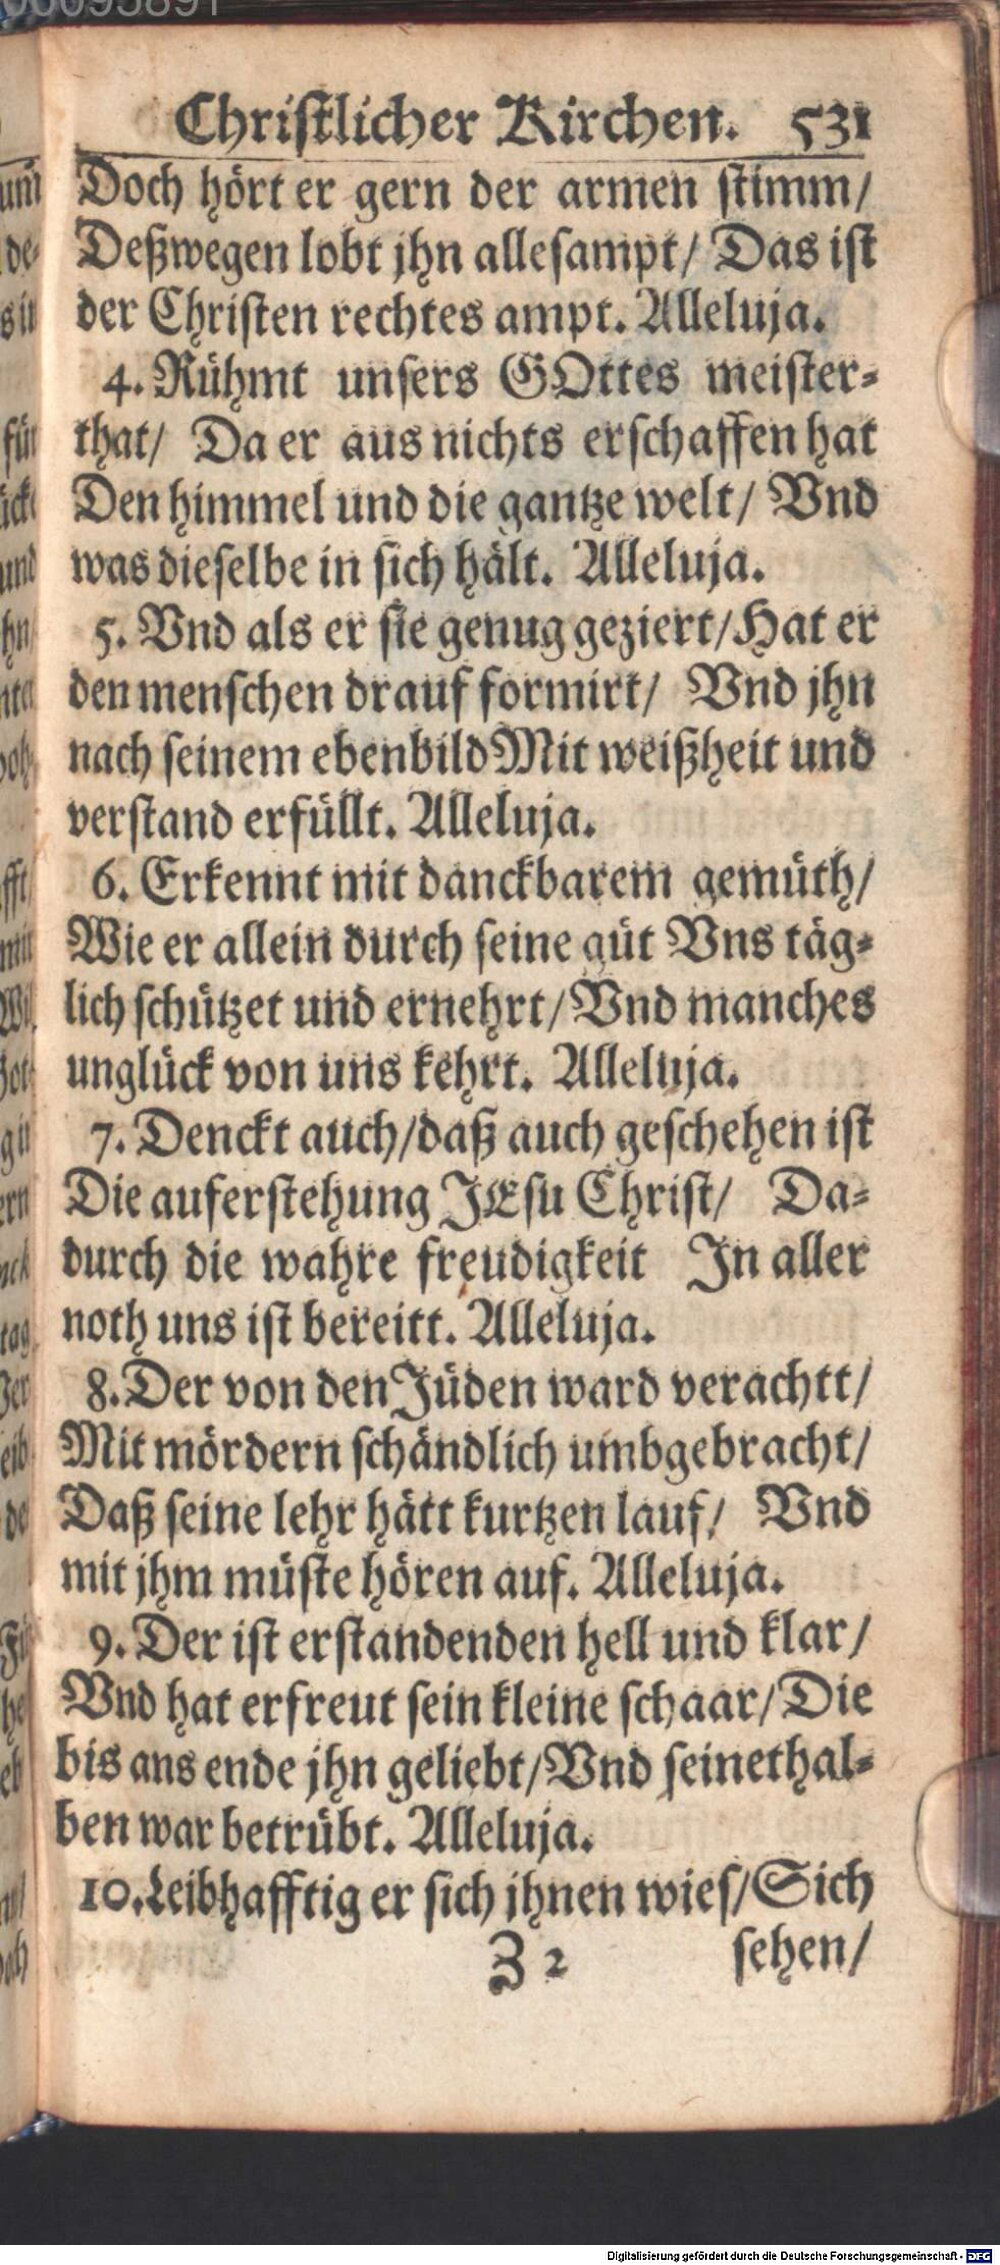 Christlicher Kirchen. 531
Doch hört er gern der armen stimm/
Deßwegen lobt jhn allesampt/ Das ist
der Christen rechtes ampt. Alleluja.
4. Rühmt unsers GOttes meister-
that/ Da er aus nichts erschaffen hat
Den himmel und die gantze welt/ Vnd
was dieselbe in sich hält. Alleluja.
5. Vnd als er sie genug geziert/ Hat er
den menschen drauf formirt/ Vnd jhn
nach seinem ebenbild Mit weißheit und
verstand erfüllt. Alleluja.
6. Erkennt mit danckbarem gemüth/
Wie er allein durch seine güt Vns täg-
lich schützet und ernehrt/ Vnd manches
unglück von uns kehrt. Alleluja.
7. Denckt auch/ daß auch geschehen ist
Die auferstehung JEsu Christ/ Da-
durch die wahre freudigkeit In aller
noth uns ist bereitt. Alleluja.
8. Der von den Jüden ward verachtt/
Mit mördern schändlich umbgebracht/
Daß seine lehr hätt kurtzen lauf/ Vnd
mit jhm müste hören auf. Alleluja.
9. Der ist erstandenden hell und klar/
Vnd hat erfreut sein kleine schaar/ Die
bis ans ende jhn geliebt/ Vnd seinethal-
ben war betrübt. Alleluja.
10. Leibhafftig er sich jhnen wies/ Sich
Z 2 sehen/
Digitalisierung gefördert durch die Deutsche Forschungsgemeinschaft - DFG